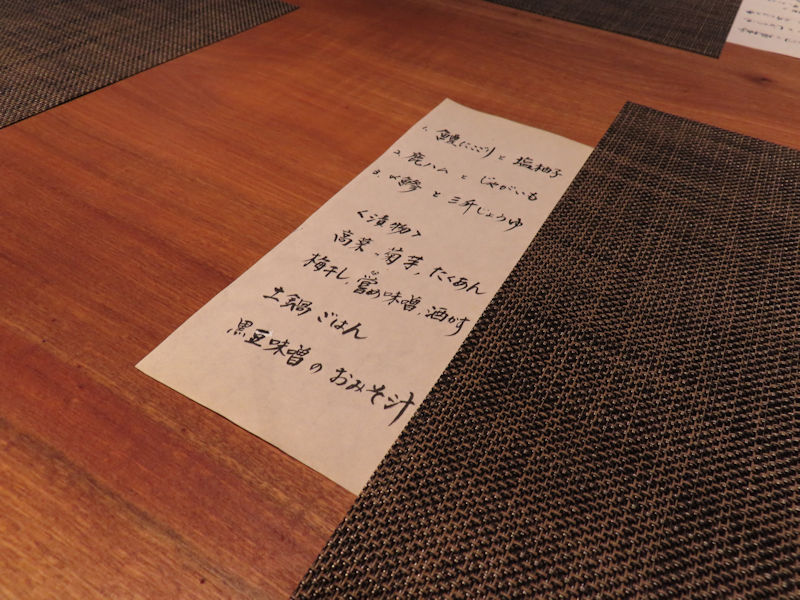 1. 鯉にこごり と 塩柚子
2. 鹿ハム と じゃがいも
3. 〆鯵 と 三升しょうゆ
〈漬物〉
高菜、菊芋、たくあん
梅干し、嘗め味噌、酒かす
土鍋ごはん
黒豆味噌の おみそ汁